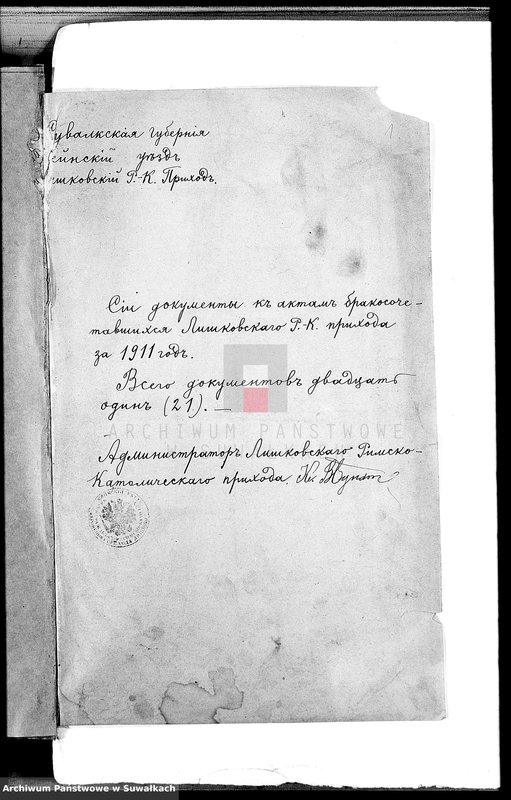 Сувалкская губернія
Сейнскій уѣздъ
ишковскій Р.-К. Приходъ.
1
Сіи документы къ актамъ бракосоче-
тавшихся Лишковскаго Р.-К. прихода
за 1911 годъ.
Всего документовъ двадцать
одинъ (21). —
ARCHIWUM PAŃSTWOWE
Администраторъ Лишковскаго Римско-
Католическаго прихода Кс.
Archiwum Państwowe w Suwałkach